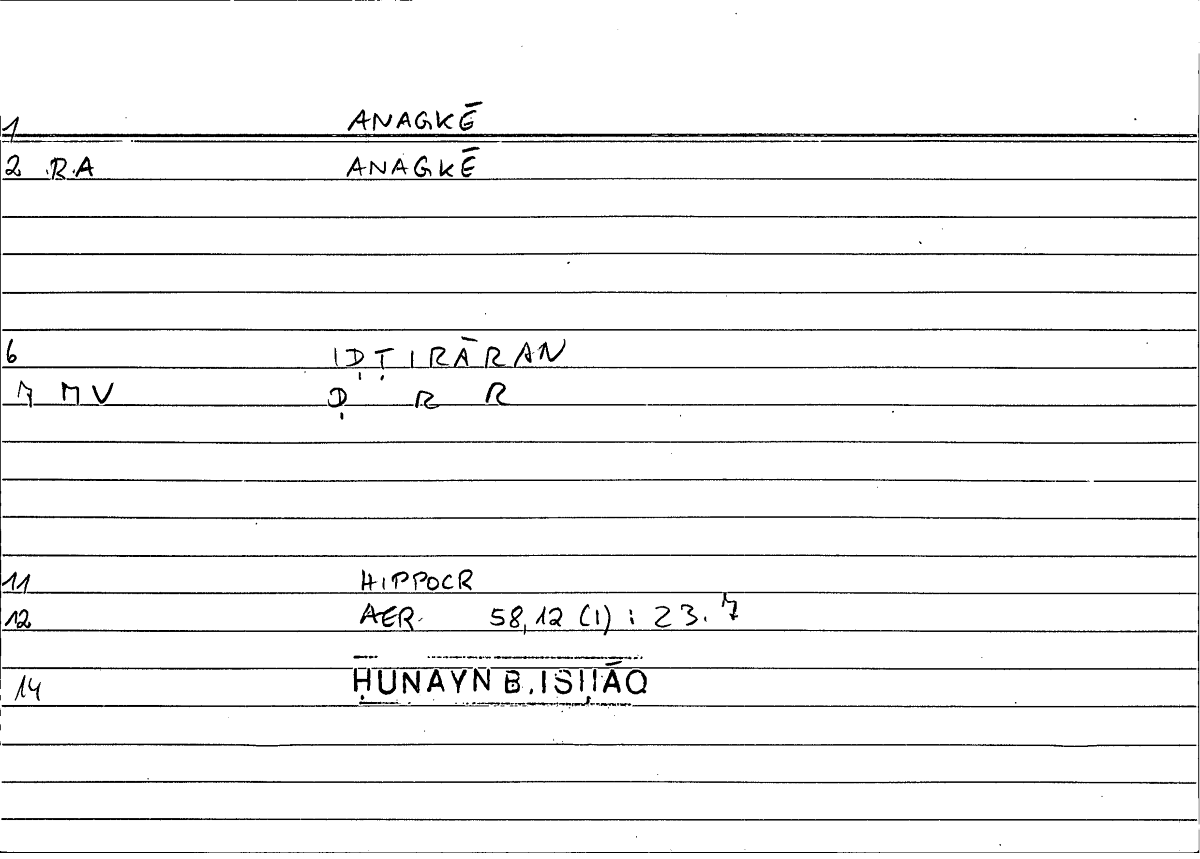 1 ANAGKĒ
2 .R.A ANAGKĒ
6 IḌṬIRĀRAN
7 MV Ḍ R R
11 HIPPOCR
12 AER. 58,12 (1) : 23.7
14 ḤUNAYN B. ISḤĀQ